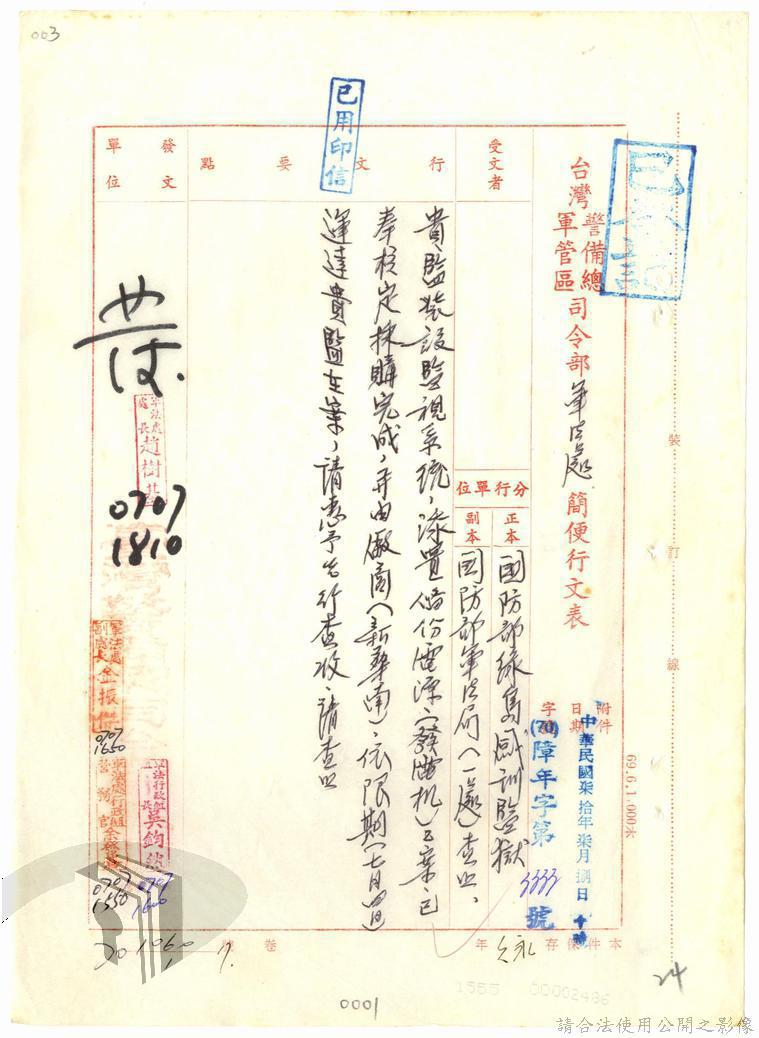 003
已用印信
台灣警備總軍管區司令部軍法處簡便行文表
受文者
行文要點
發文單位
分行單位
正本
國防部綠島感訓監獄
副本
國防部軍法局(一處)查照、
附件
日期
中華民國柒拾年柒月捌日
字號
(70)障年字第3333號
貴監裝設監視系統,添置備份電源(發電机)乙案,已
奉核定採購完成,并由廠商(新桑南),依限期(七月四日)
運達貴監在案,請惠予先行查收,請查照
軍法處處長趙樹基
0707
1810
軍法處副處長金振傑
0707
1650
軍法行政組組長吳鈞
0707
1600
軍法處行政組
0707
1550
本件保存永久年
卷
裝訂線
69.6.1.000本
24
1555 00002486
0001
請合法使用公開之影像